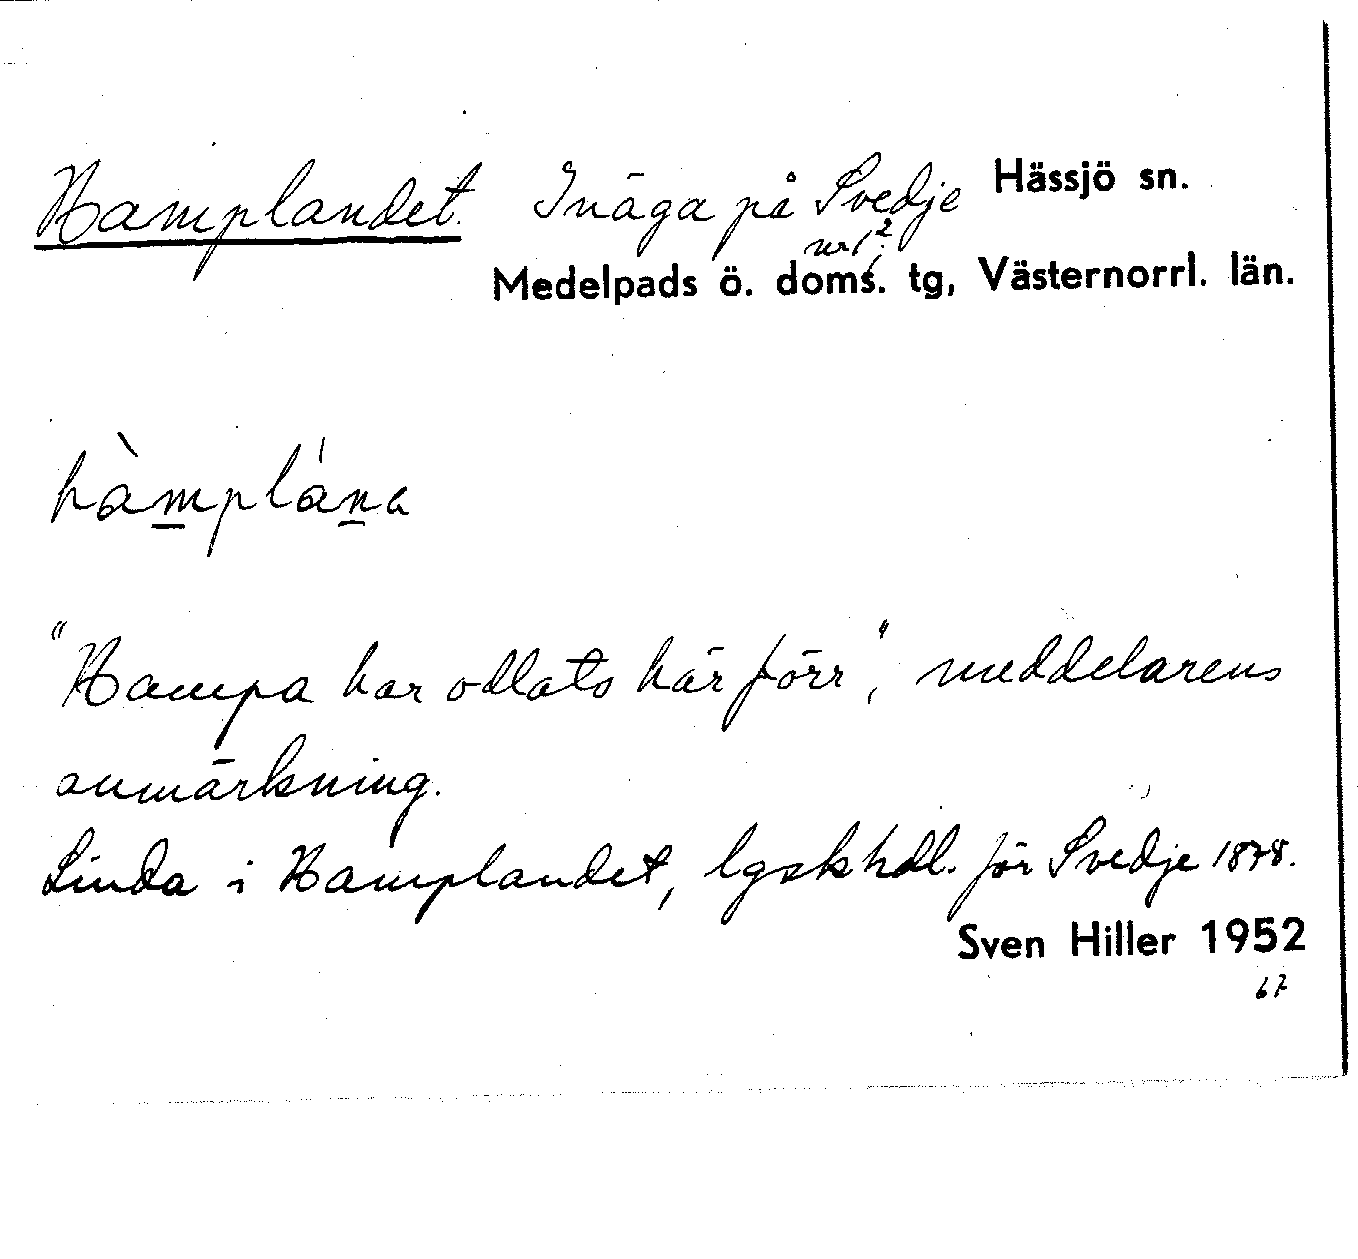 Hamplandet. Inäga på Svedje Hässjö sn.
nr 1²
Medelpads ö. doms. tg, Västernorrl. län.
hàmplána
"Hampa har odlats här förr", meddelarens
anmärkning.
Linda i Hamplandet, lgskhdl. för Svedje 1878.
Sven Hiller 1952
67